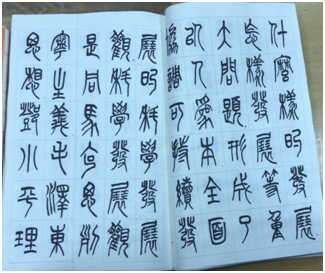 什麼樣的發展
怎樣發展等重
大問題形成了
以人為本全面
協調可持續發
展的科學發展
觀科學發展觀
是同馬克思列
寧主義毛澤東
思想鄧小平理